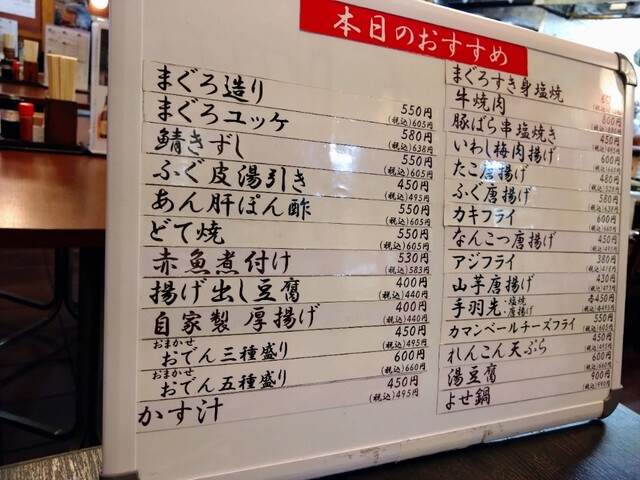 本日のおすすめ
まぐろ造り 550円 (税込)605円
まぐろユッケ 580円 (税込)638円
鯖きずし 550円 (税込)605円
ふぐ皮湯引き 450円 (税込)495円
あん肝ぽん酢 550円 (税込)605円
どて焼 550円 (税込)605円
赤魚煮付け 530円 (税込)583円
揚げ出し豆腐 400円 (税込)440円
自家製 厚揚げ 400円 (税込)440円
おまかせ
おでん三種盛り 450円 (税込)495円
おまかせ
おでん五種盛り 600円 (税込)660円
かす汁 450円 (税込)495円
まぐろすき身塩焼
牛焼肉 800円
豚ばら串塩焼き 450円
いわし梅肉揚げ 600円
たこ唐揚げ 480円
ふぐ唐揚げ 580円
カキフライ 600円
なんこつ唐揚げ 450円
アジフライ 380円
山芋唐揚げ 430円
手羽先・塩焼・唐揚げ 各450円
カマンベールチーズフライ 550円
れんこん天ぷら 450円
湯豆腐 600円
よせ鍋 900円